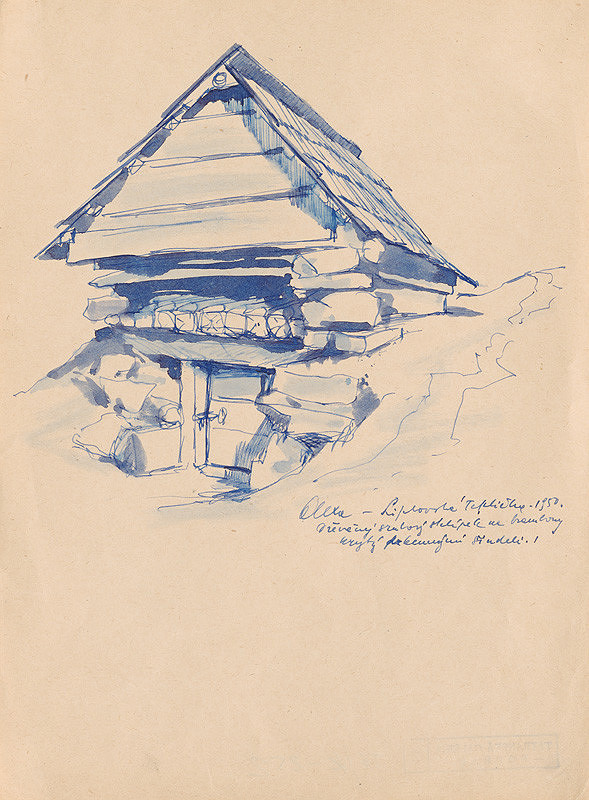 Olexa – Liptovská Teplička. 1950.
Dřevěný srubový sklípek na brambory
krytý šindeli.